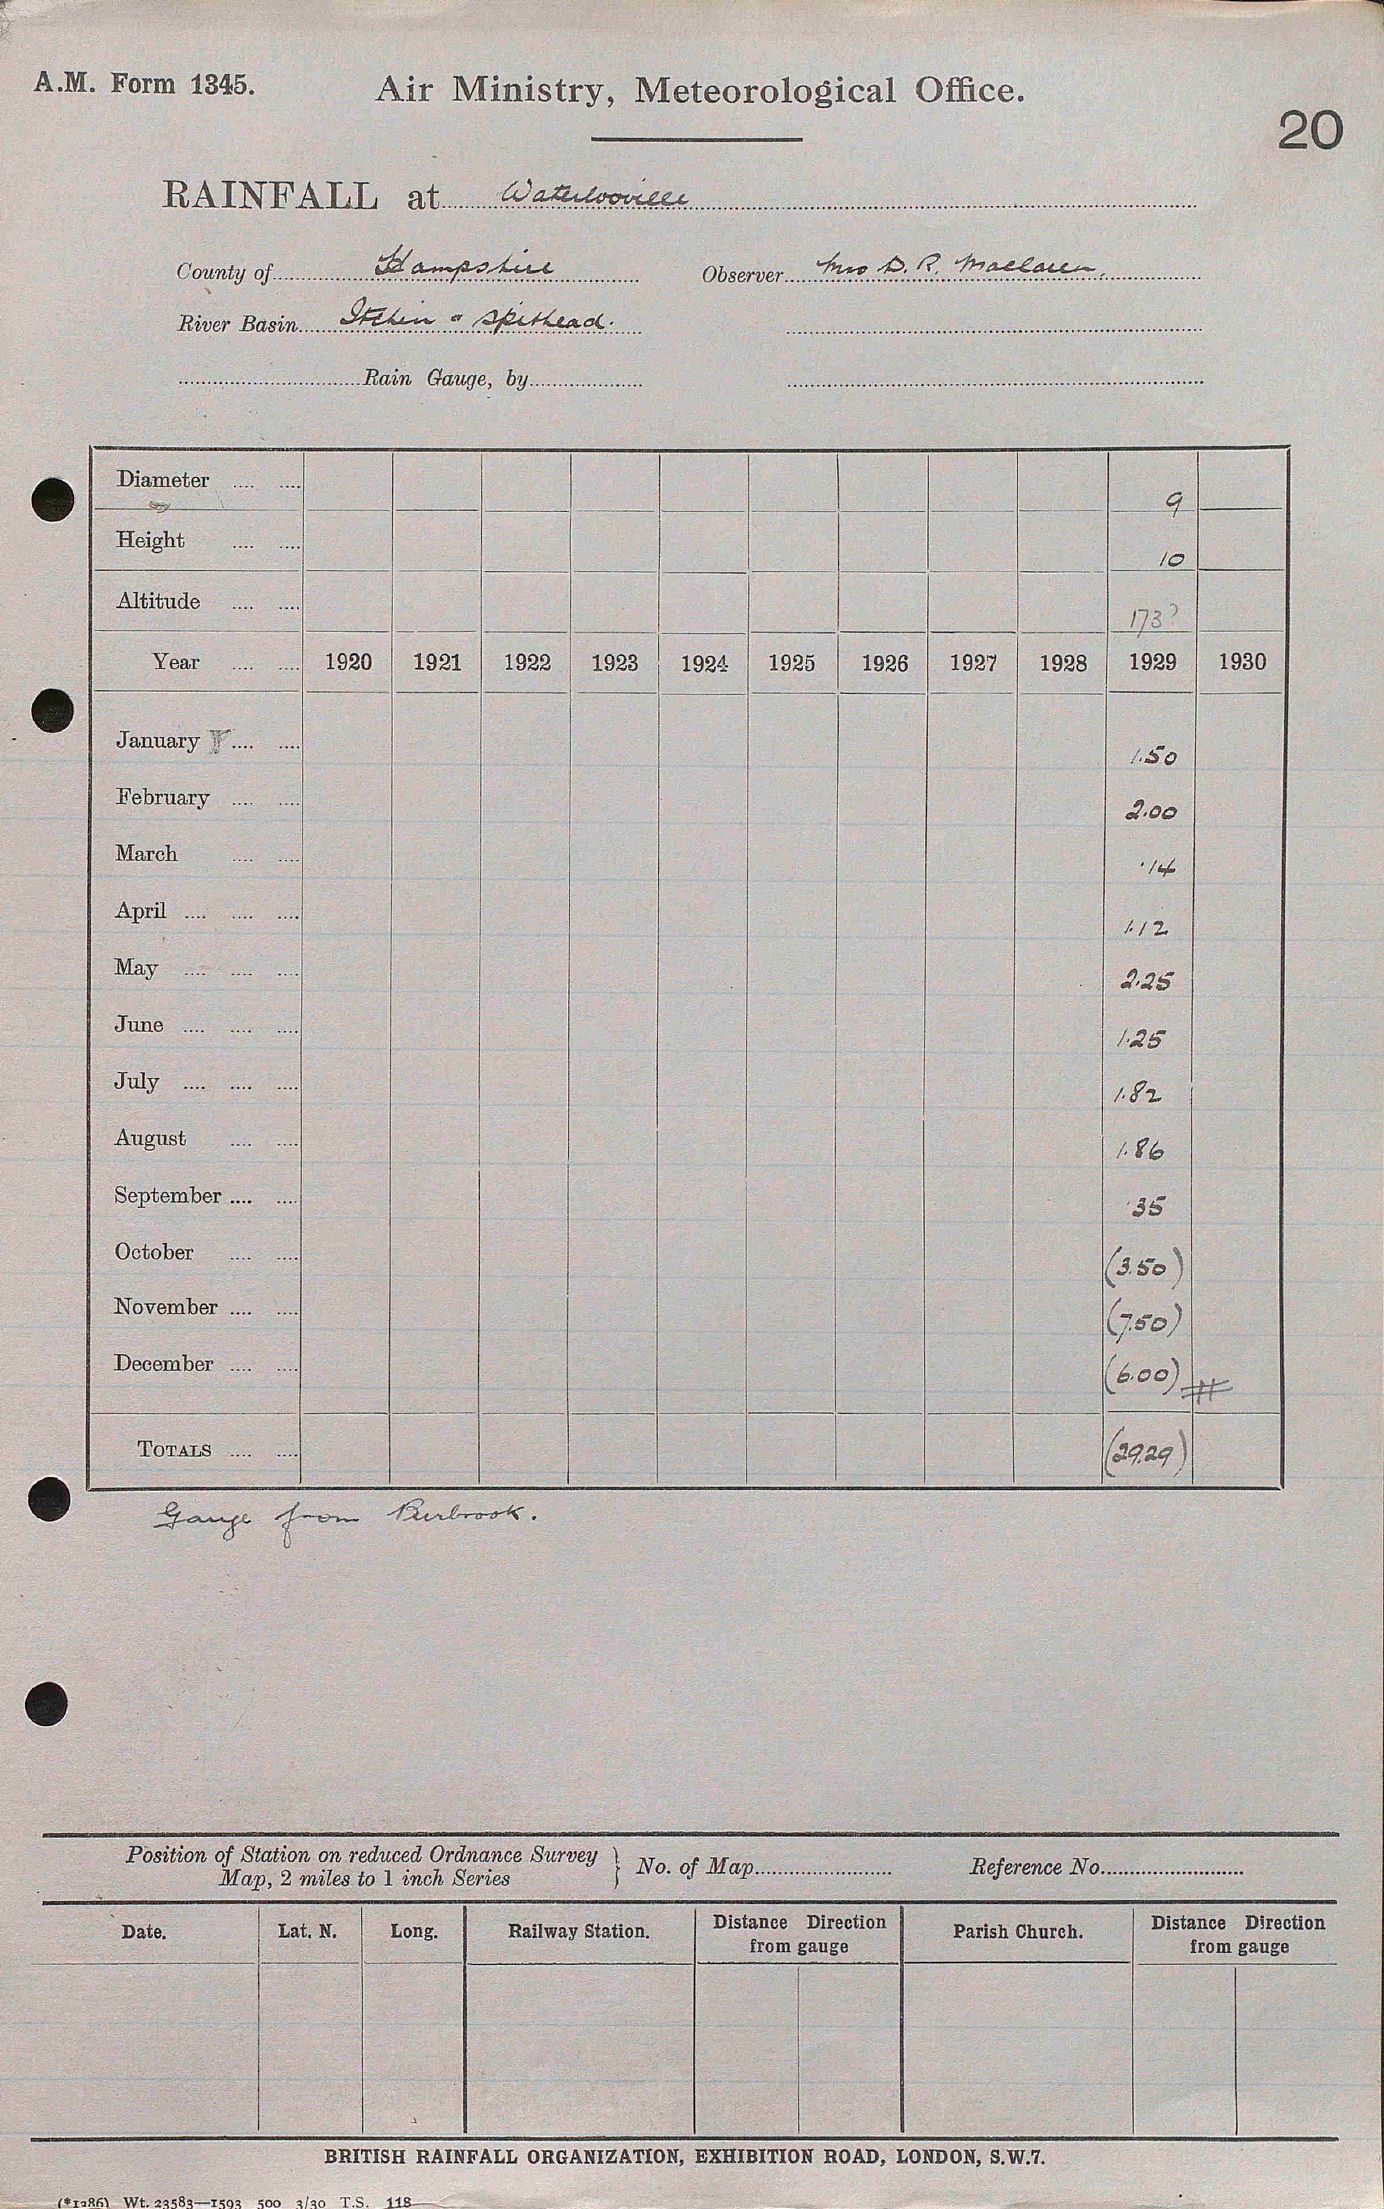 A.M. Form 1345.
Air Ministry, Meteorological Office.
20
RAINFALL at Waterlooville
County of Hampshire Observer Mrs D. R. Maclaren.
River Basin Itchin & Spithead.
Rain Gauge, by
Diameter 9
Height 10
Altitude 173?
Year 1920 1921 1922 1923 1924 1925 1926 1927 1928 1929 1930
January 1.50
February 2.00
March .14
April 1.12
May 2.25
June 1.25
July 1.82
August 1.86
September .35
October (3.50)
November (7.50)
December (6.00) #
TOTALS (29.29)
Gauge from Purbrook.
Position of Station on reduced Ordnance Survey
Map, 2 miles to 1 inch Series } No. of Map Reference No.
Date. Lat. N. Long. Railway Station. Distance Direction from gauge Parish Church. Distance Direction from gauge
BRITISH RAINFALL ORGANIZATION, EXHIBITION ROAD, LONDON, S.W.7.
(*1286) Wt. 23583—1593 500 3/30 T.S. 118